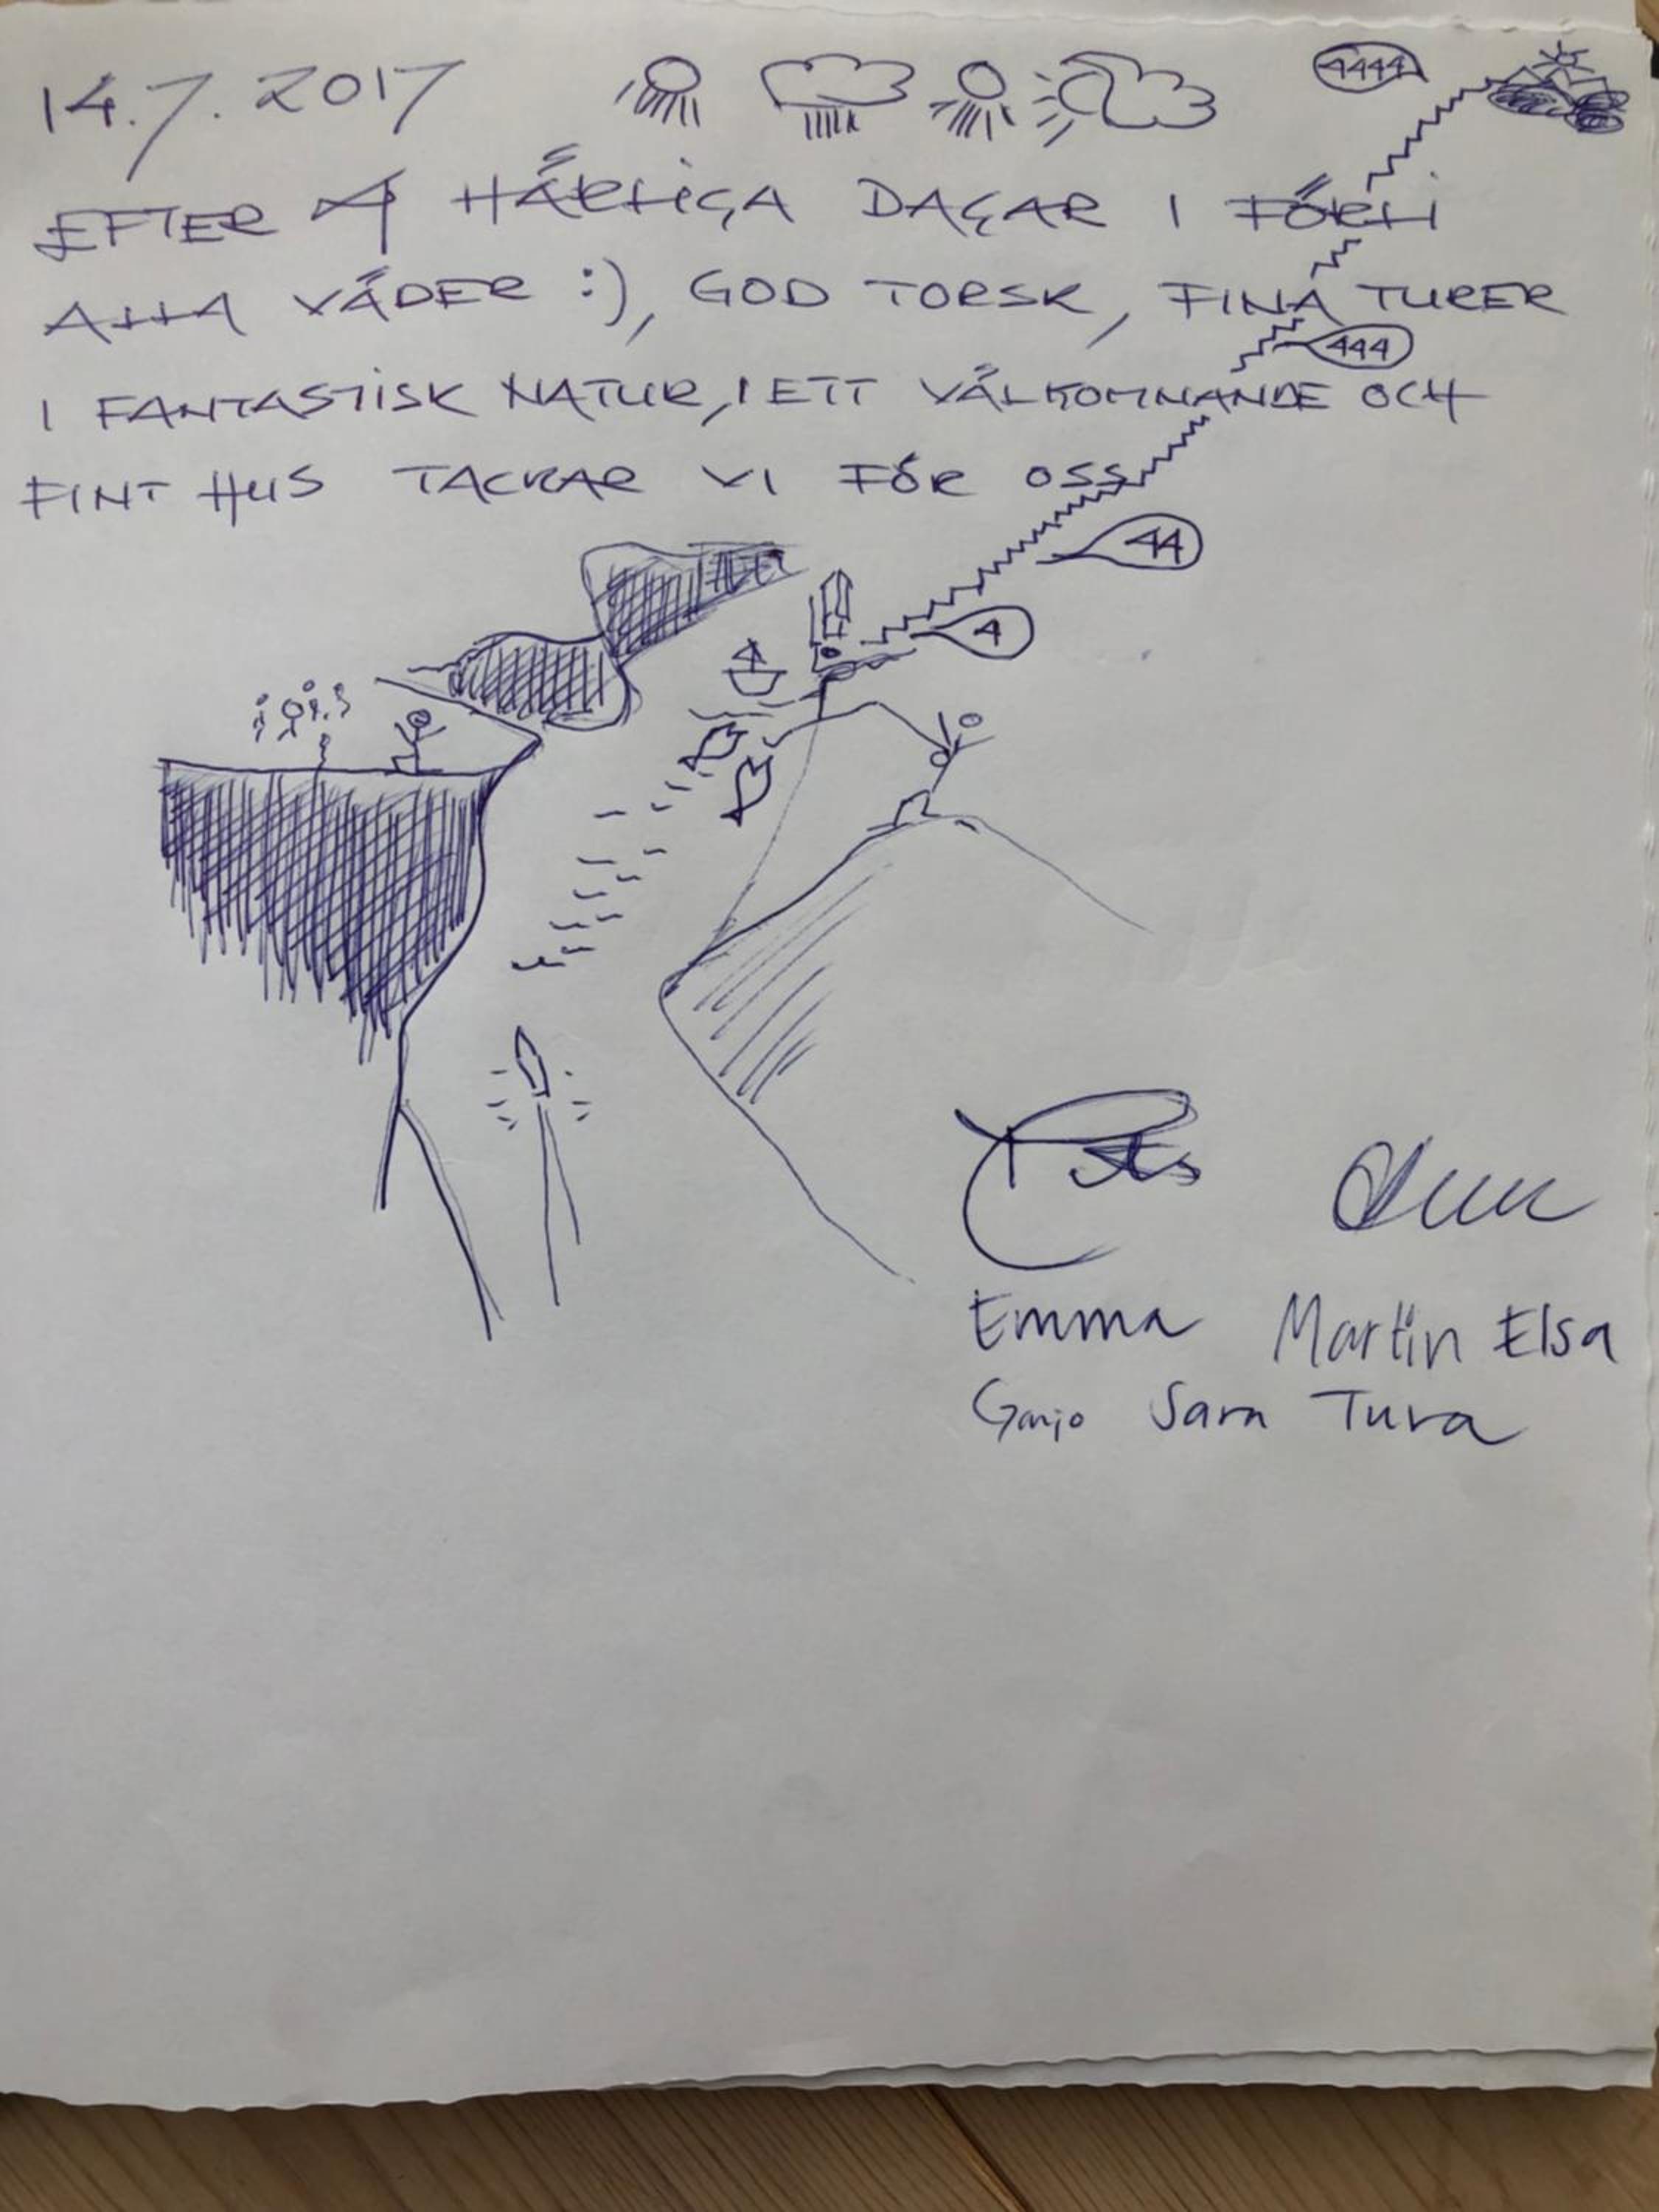 14.7.2017
4444
EFTER 4 HÄRLIGA DAGAR I FÖRLI
ALLA VÄDER :), GOD TORSK, FINA TURER
444
I FANTASTISK NATUR, I ETT VÄLKOMNANDE OCH
FINT HUS TACKAR VI FÖR OSS
44
4
Emma Martin Elsa
Sara Tuva